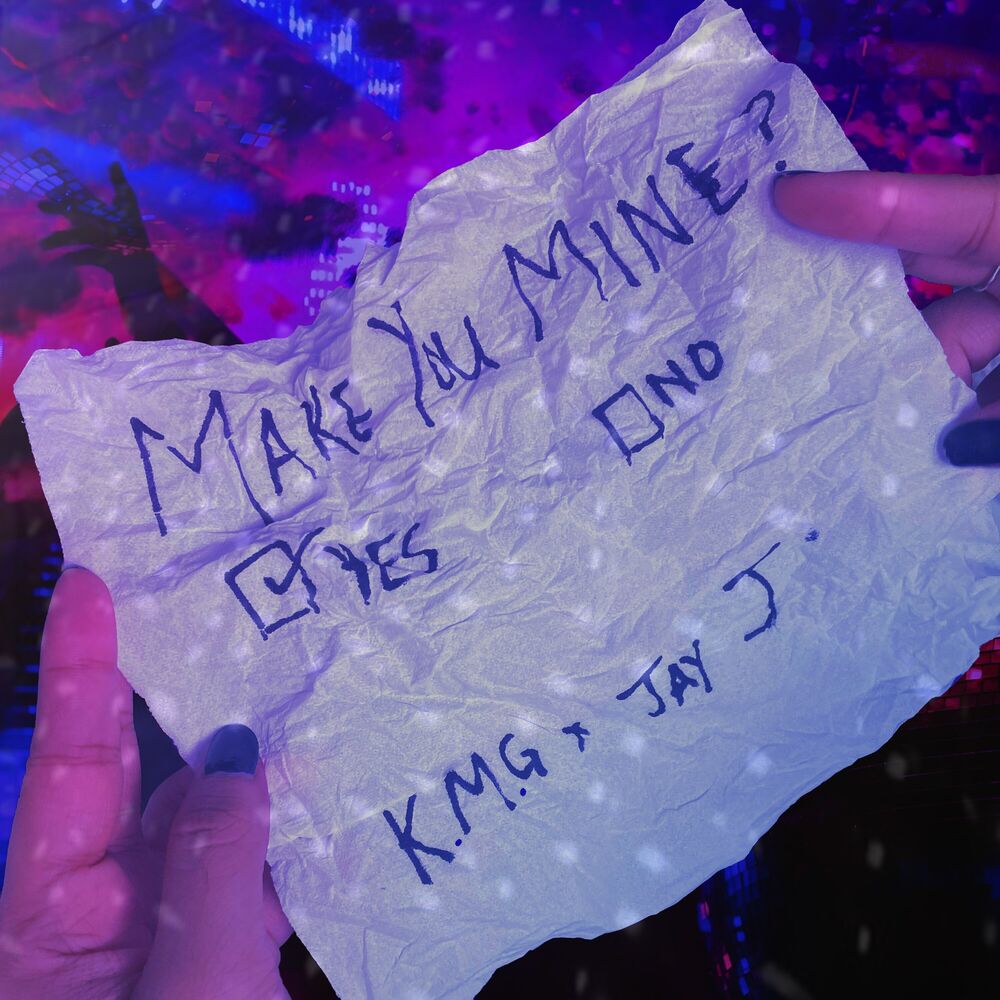 MAKE YOU MINE?
☑ YES ☐ NO
K.M.G x JAY J.